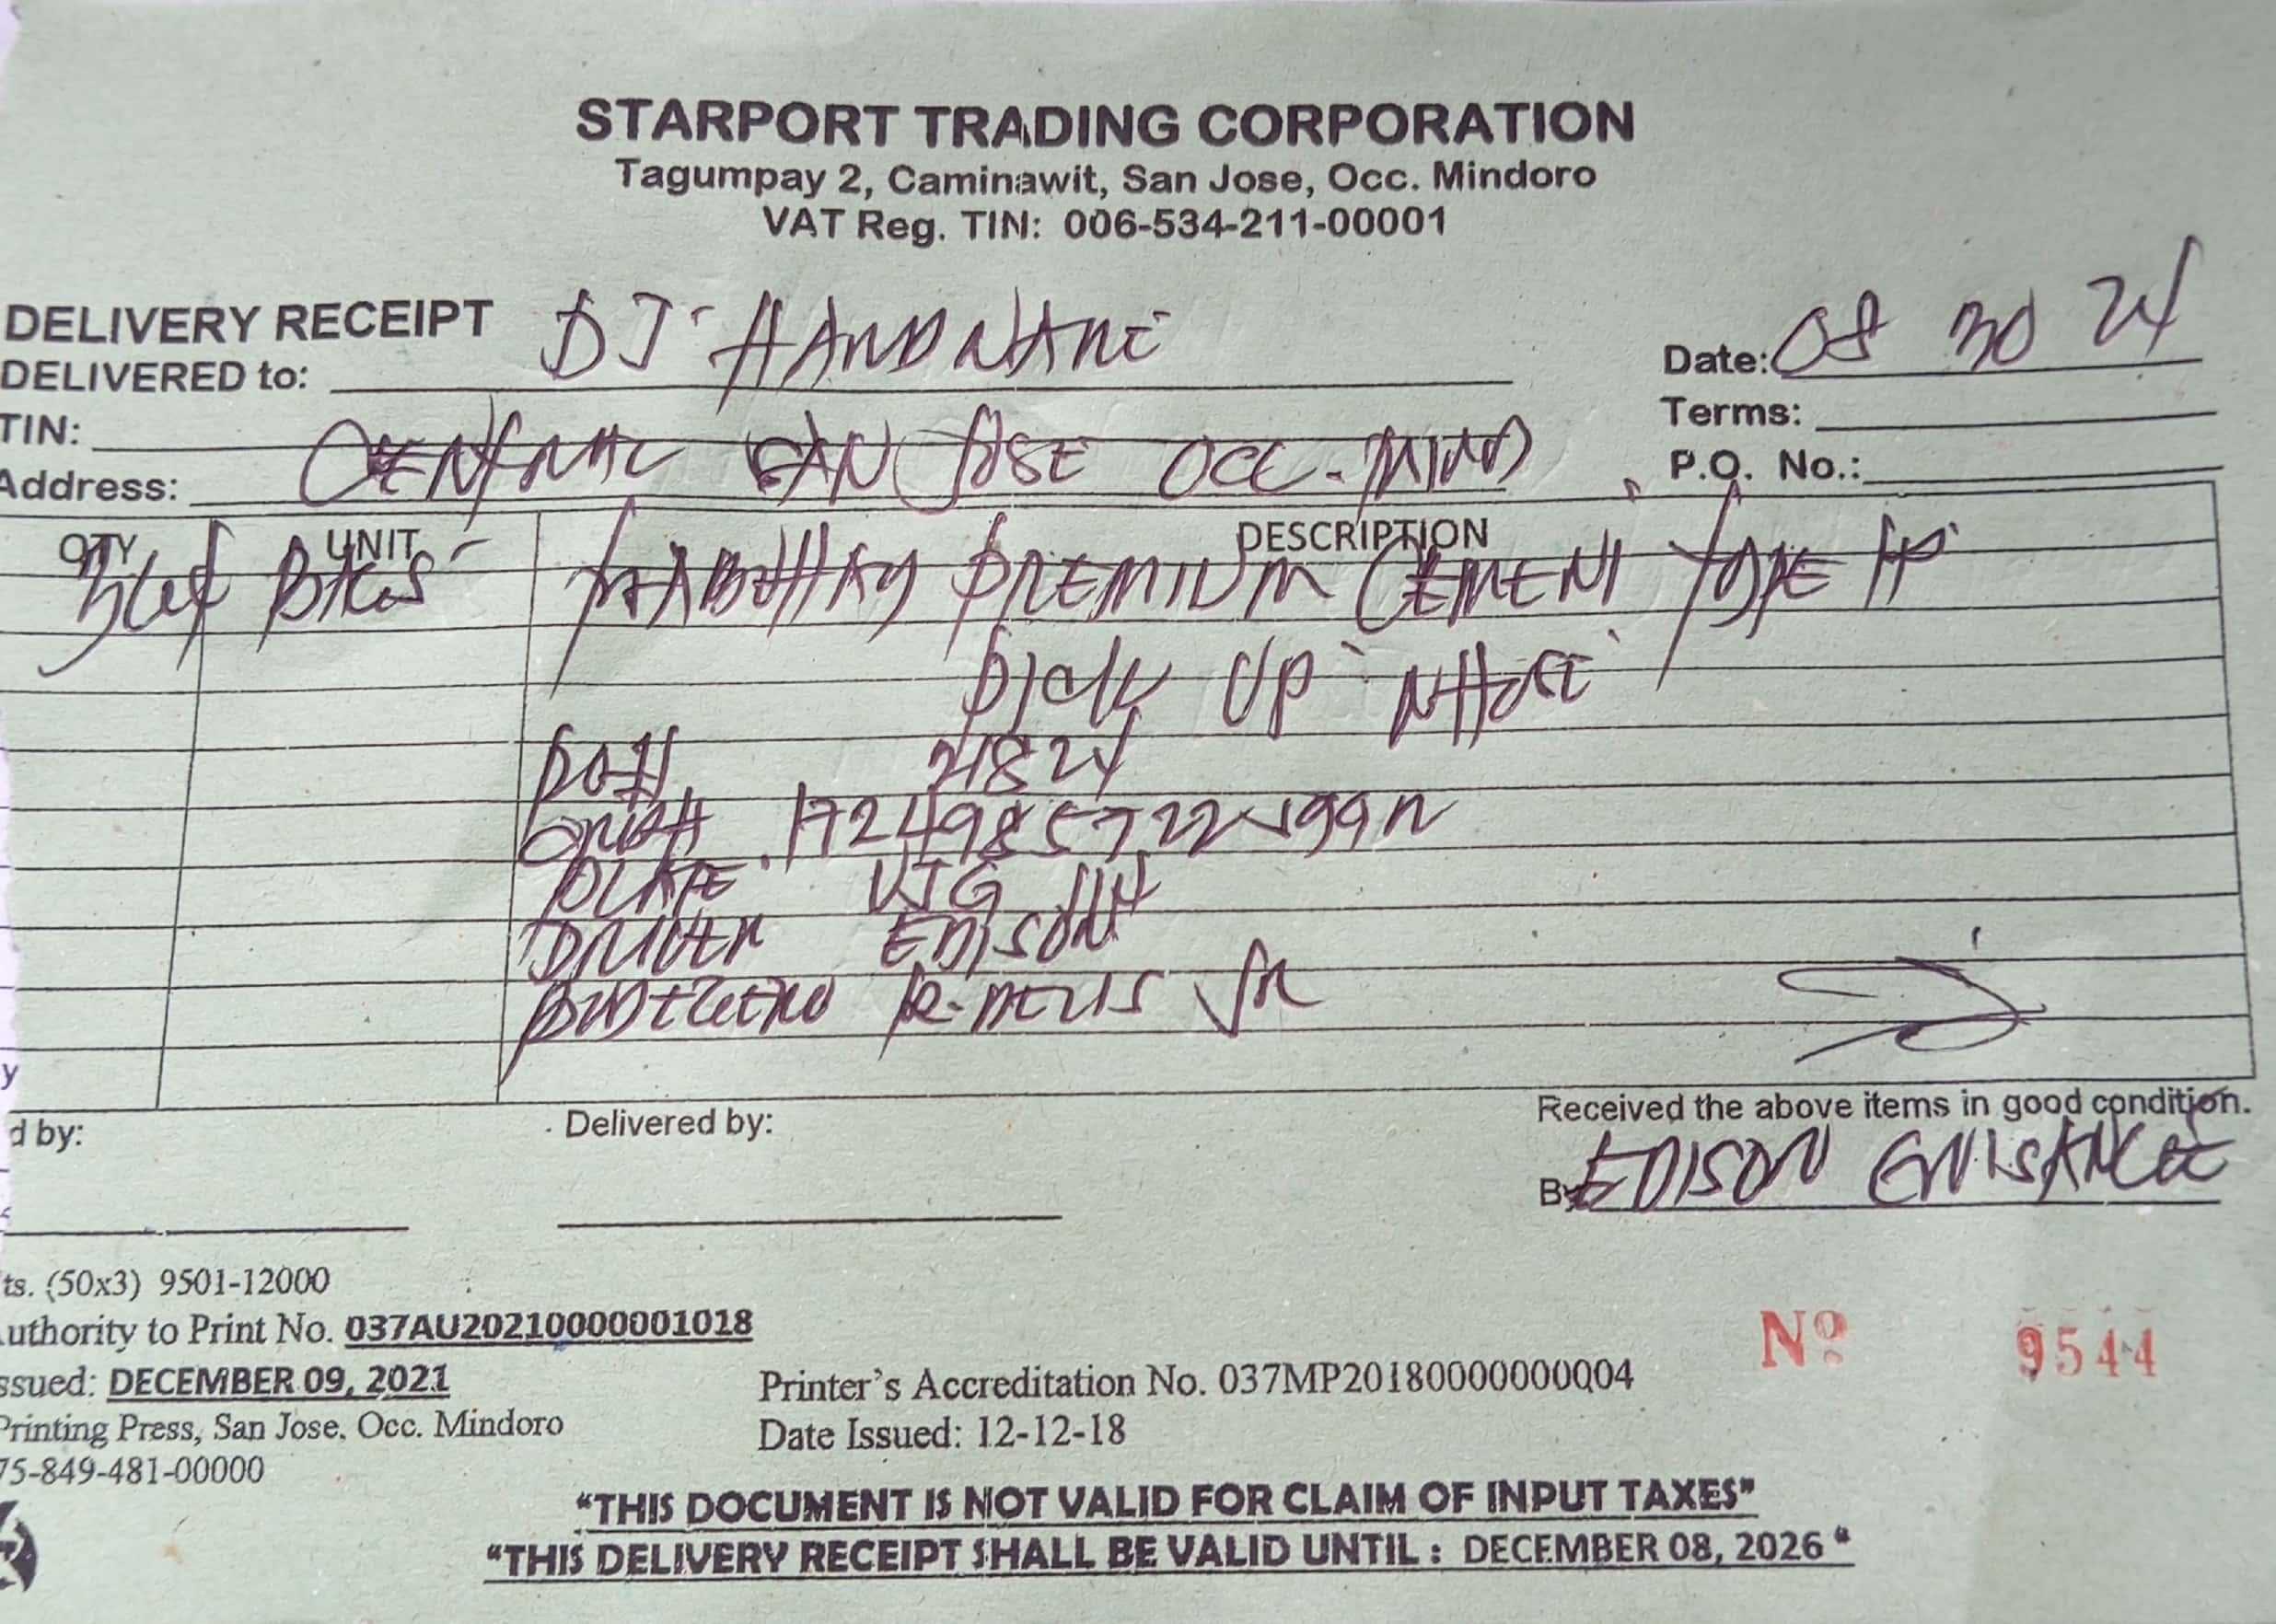 STARPORT TRADING CORPORATION
Tagumpay 2, Caminawit, San Jose, Occ. Mindoro
VAT Reg. TIN: 006-534-211-00001
DELIVERY RECEIPT
DELIVERED to: DJ HARDWARE
Date: 08 30 24
TIN:
Terms:
Address: CENTRAL SAN JOSE OCC. MIND
P.O. No.:
QTY UNIT DESCRIPTION
BAGS PREMIUM CEMENT TYPE
PICK UP WHSE
PO# 21824
1724985722
PLATE
DRIVER EDISON
JR
Received the above items in good condition.
d by:
Delivered by:
By EDISON
ts. (50x3) 9501-12000
uthority to Print No. 037AU20210000001018
Nº 9544
ssued: DECEMBER 09, 2021
Printer's Accreditation No. 037MP20180000000004
Printing Press, San Jose, Occ. Mindoro
Date Issued: 12-12-18
75-849-481-00000
“THIS DOCUMENT IS NOT VALID FOR CLAIM OF INPUT TAXES”
“THIS DELIVERY RECEIPT SHALL BE VALID UNTIL : DECEMBER 08, 2026 “